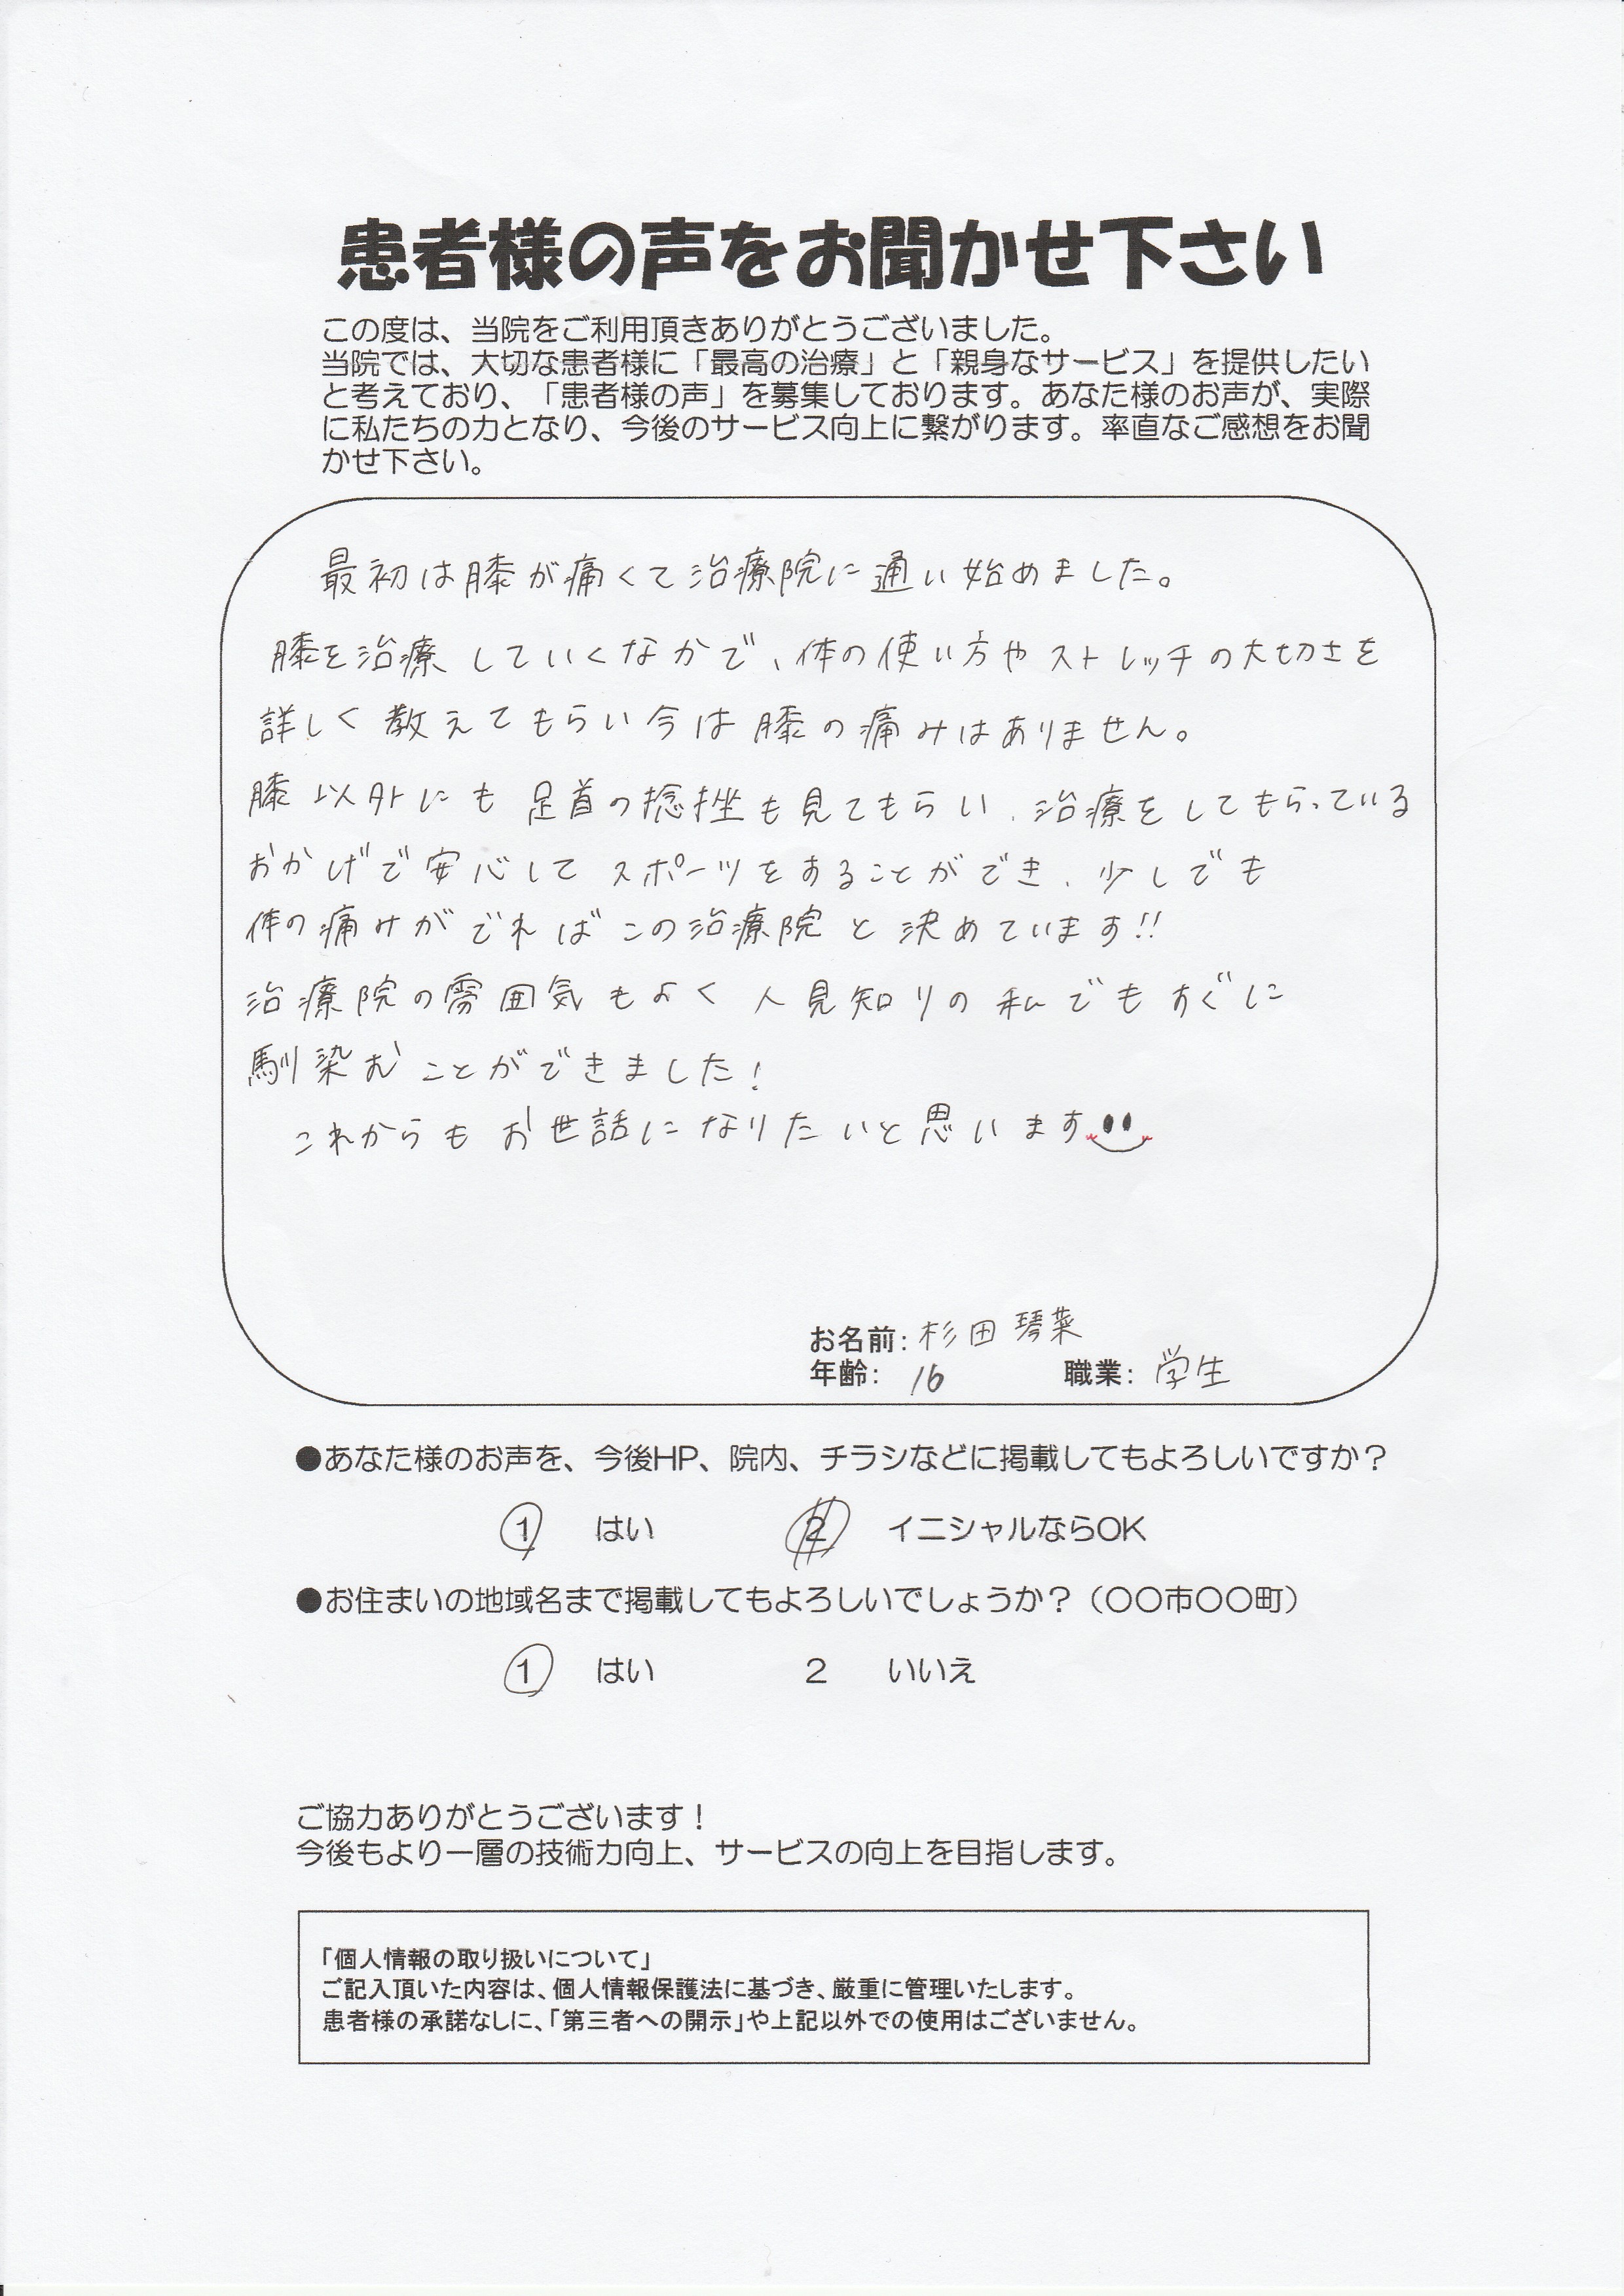 患者様の声をお聞かせ下さい
この度は、当院をご利用頂きありがとうございました。
当院では、大切な患者様に「最高の治療」と「親身なサービス」を提供したい
と考えており、「患者様の声」を募集しております。あなた様のお声が、実際
に私たちの力となり、今後のサービス向上に繋がります。率直なご感想をお聞
かせ下さい。
最初は膝が痛くて治療院に通い始めました。
膝を治療していくなかで、体の使い方やストレッチの大切さを
詳しく教えてもらい今は膝の痛みはありません。
膝以外にも足首の捻挫も見てもらい、治療をしてもらっている
おかげで安心してスポーツをすることができ、少しでも
体の痛みがでればこの治療院と決めています!!
治療院の雰囲気もよく人見知りの私でもすぐに
馴染むことができました!
これからもお世話になりたいと思います
お名前：杉田 琴菜
年齢：16 職業：学生
●あなた様のお声を、今後HP、院内、チラシなどに掲載してもよろしいですか？
1 はい 2 イニシャルならOK
●お住まいの地域名まで掲載してもよろしいでしょうか？（〇〇市〇〇町）
1 はい 2 いいえ
ご協力ありがとうございます！
今後もより一層の技術力向上、サービスの向上を目指します。
「個人情報の取り扱いについて」
ご記入頂いた内容は、個人情報保護法に基づき、厳重に管理いたします。
患者様の承諾なしに、「第三者への開示」や上記以外での使用はございません。